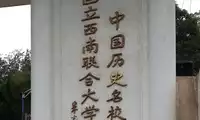 中国历史名校
国立西南联合大学